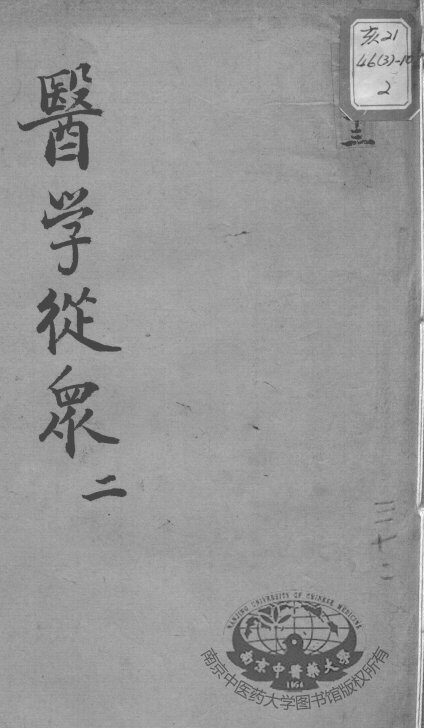 醫学從眾
二
亥21
46(3)-10
2
三
三十二
NANJING UNIVERSITY OF CHINESE MEDICINE
南京中醫藥大學
1954
南京中医药大学图书馆版权所有